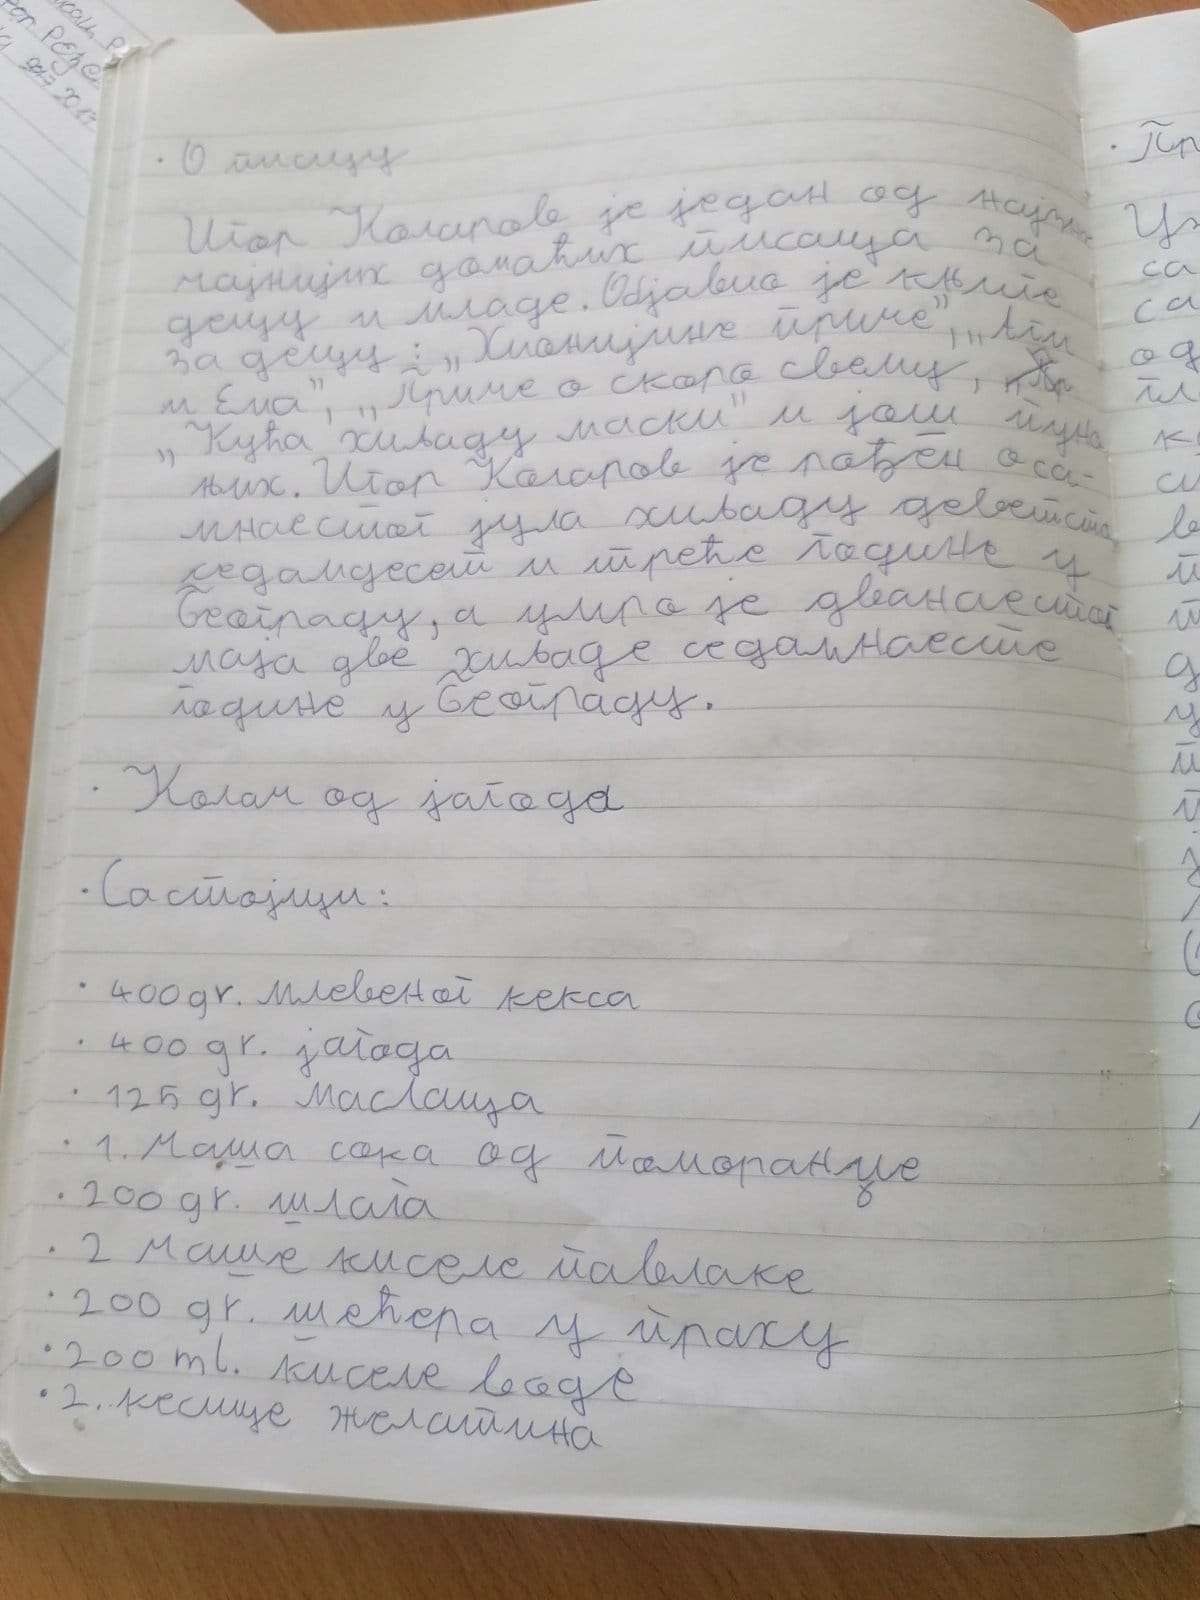 • О писцу
Игор Коларов је један од најзна-
чајнијих домаћих писаца за
децу и младе. Објавио је књиге
за децу: „Хионијине приче", „Аги
и Ема", „Приче о скоро свему,
„Кућа хиљаду маски" и још пуно
њих. Игор Коларов је рођен оса-
мнаестог јула хиљаду деветсто
седамдесет и треће године у
Београду, а умро је дванаестог
маја две хиљаде седамнаесте
године у Београду.
• Колач од јагода
• Састојци:
• 400gr. млевеног кекса
• 400 gr. јагода
• 125 gr. маслаца
• 1. чаша сока од поморанџе
• 200 gr. шлага
• 2 чаше киселе павлаке
• 200 gr. шећера у праху
• 200 ml. киселе воде
• 2. кесице желатина
• Пр
са
са
од